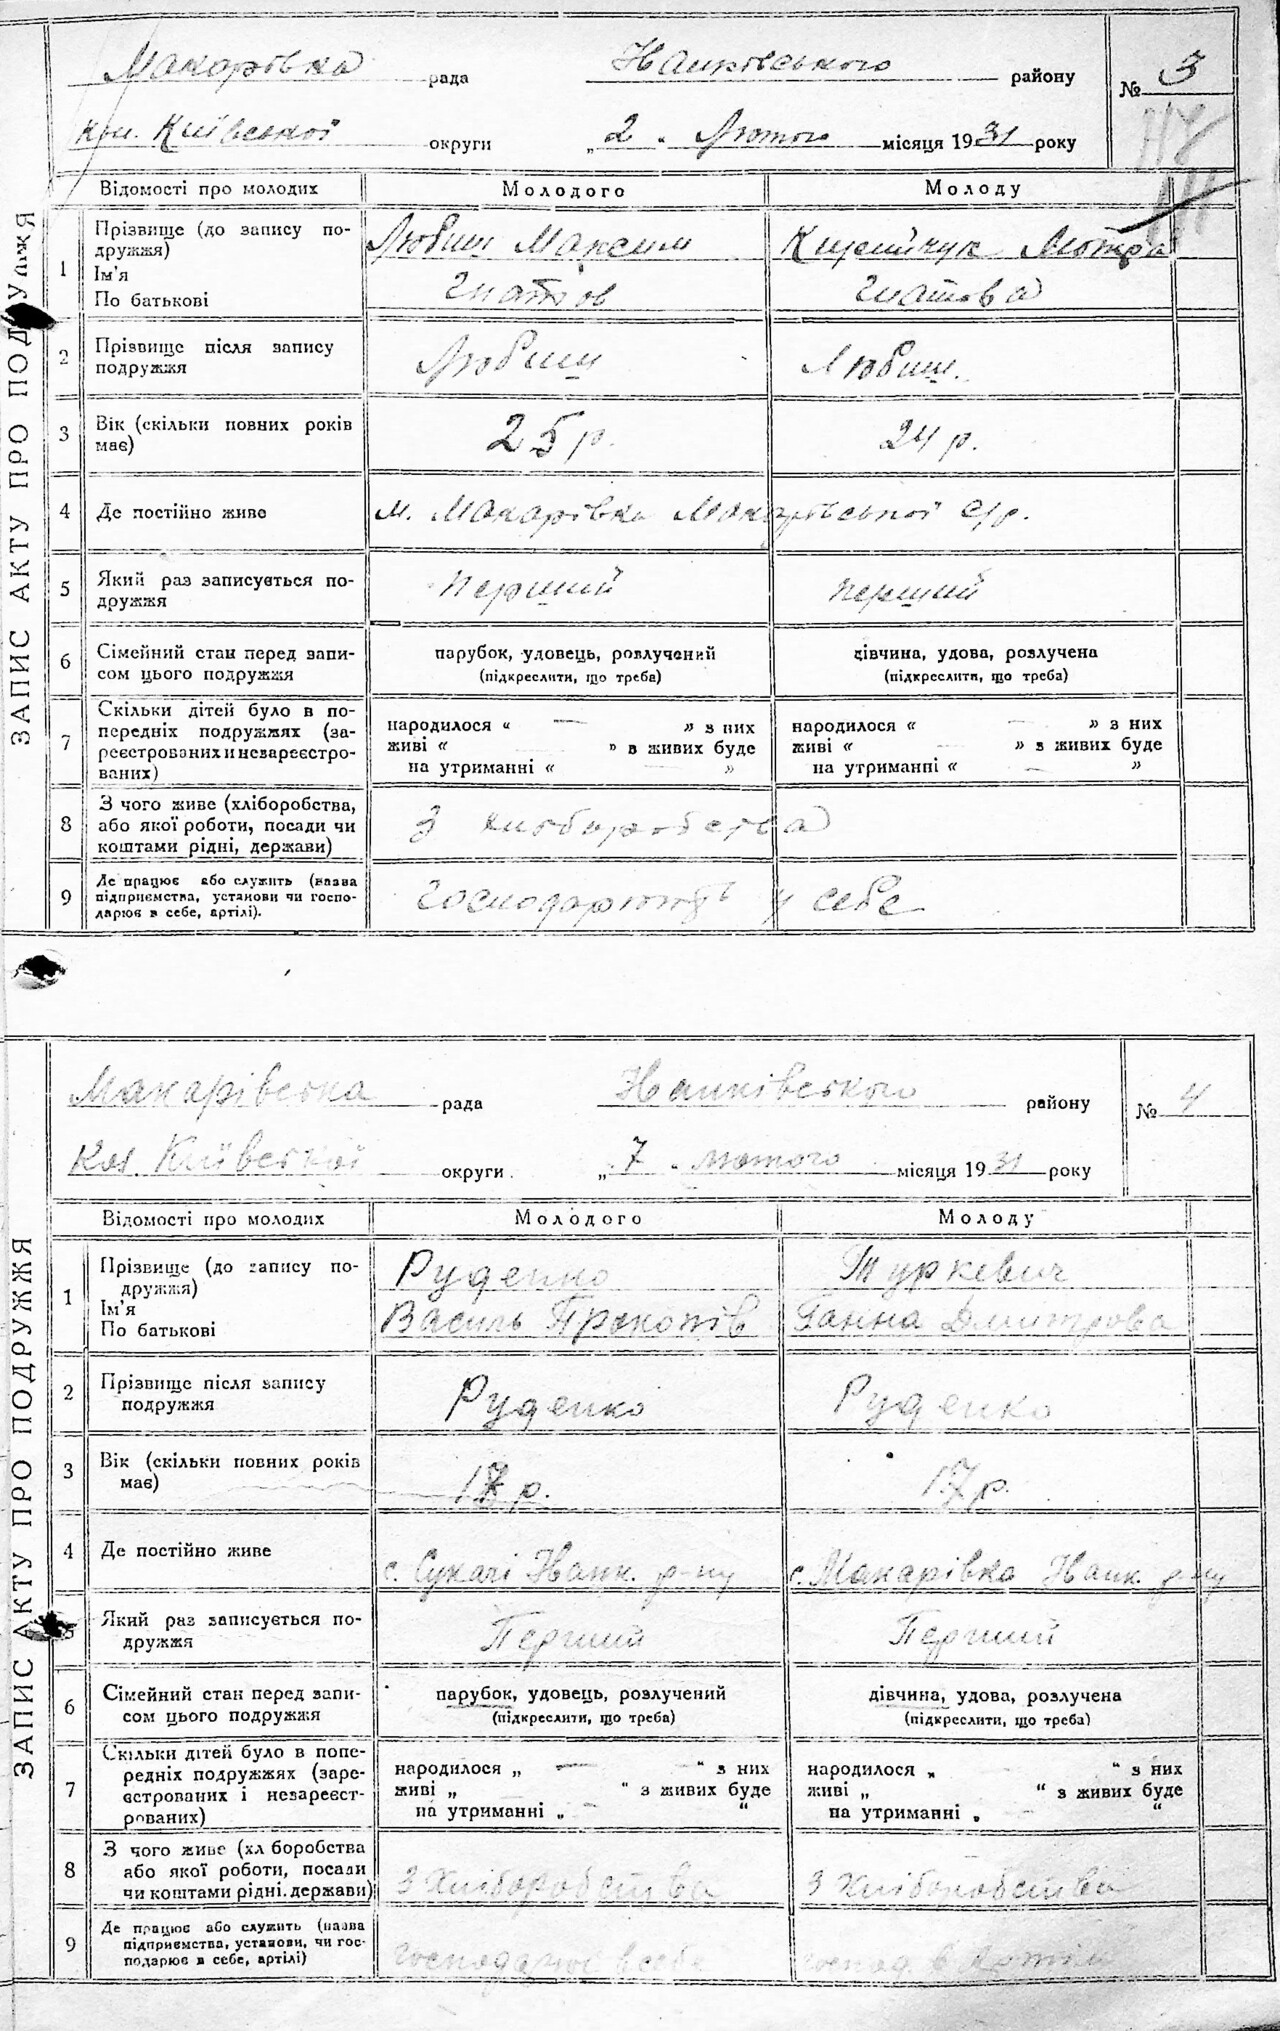 ЗАПИС АКТУ ПРО ПОДРУЖЖЯ
Макарівка рада Іванківського району № 3
кол. Київської округи „2" Лютого місяця 1931 року
Відомості про молодих Молодого Молоду
1 Прізвище (до запису по-
дружжя)
Ім'я
По батькові
Любиш Максим
Гнатов
Мотра
Гнатова
2 Прізвище після запису
подружжя
Любиш Любиш.
3 Вік (скільки повних років
має)
25 р. 24 р.
4 Де постійно живе м. Макарівка Макарівської с/р.
5 Який раз записується по-
дружжя
перший перший
6 Сімейний стан перед запи-
сом цього подружжя
парубок, удовець, розлучений
(підкреслити, що треба)
дівчина, удова, розлучена
(підкреслити, що треба)
7 Скільки дітей було в по-
передніх подружжях (за-
реєстрованих и незареєстро-
ваних)
народилося « — » з них
живі « » з живих буде
на утриманні « »
народилося « — » з них
живі « » з живих буде
на утриманні « — »
8 З чого живе (хліборобства,
або якої роботи, посади чи
коштами рідні, держави)
З хліборобства
9 Де працює або служить (назва
підприємства, установи чи госпо-
дарює в себе, артілі).
Господарюють у себе
ЗАПИС АКТУ ПРО ПОДРУЖЖЯ
Макарівська рада Іванківського району № 4
кол. Київської округи. „7" лютого місяця 1931 року
Відомості про молодих Молодого Молоду
1 Прізвище (до запису по-
дружжя)
Ім'я
По батькові
Руденко
Василь Прокопів
Туркевич
Ганна Дмитрова
2 Прізвище після запису
подружжя
Руденко Руденко
3 Вік (скільки повних років
має)
р. 17 р.
4 Де постійно живе с. Сукачі Іванк. р-ну с. Макарівка Іванк. р-ну
5 Який раз записується по-
дружжя
Перший Перший
6 Сімейний стан перед запи-
сом цього подружжя
парубок, удовець, розлучений
(підкреслити, що треба)
дівчина, удова, розлучена
(підкреслити, що треба)
7 Скільки дітей було в попе-
редніх подружжях (заре-
єстрованих і незареєст-
рованих)
народилося „ — " з них
живі „ " з живих буде
на утриманні „ — "
народилося „ — " з них
живі „ " з живих буде
на утриманні „ "
8 З чого живе (хл боробства
або якої роботи, посади
чи коштами рідні. держави)
З Хліборобства З Хліборобства
9 Де працює або служить (назва
підприємства, установи, чи гос-
подарює в себе, артілі)
господарює в себе господ. в Артілі